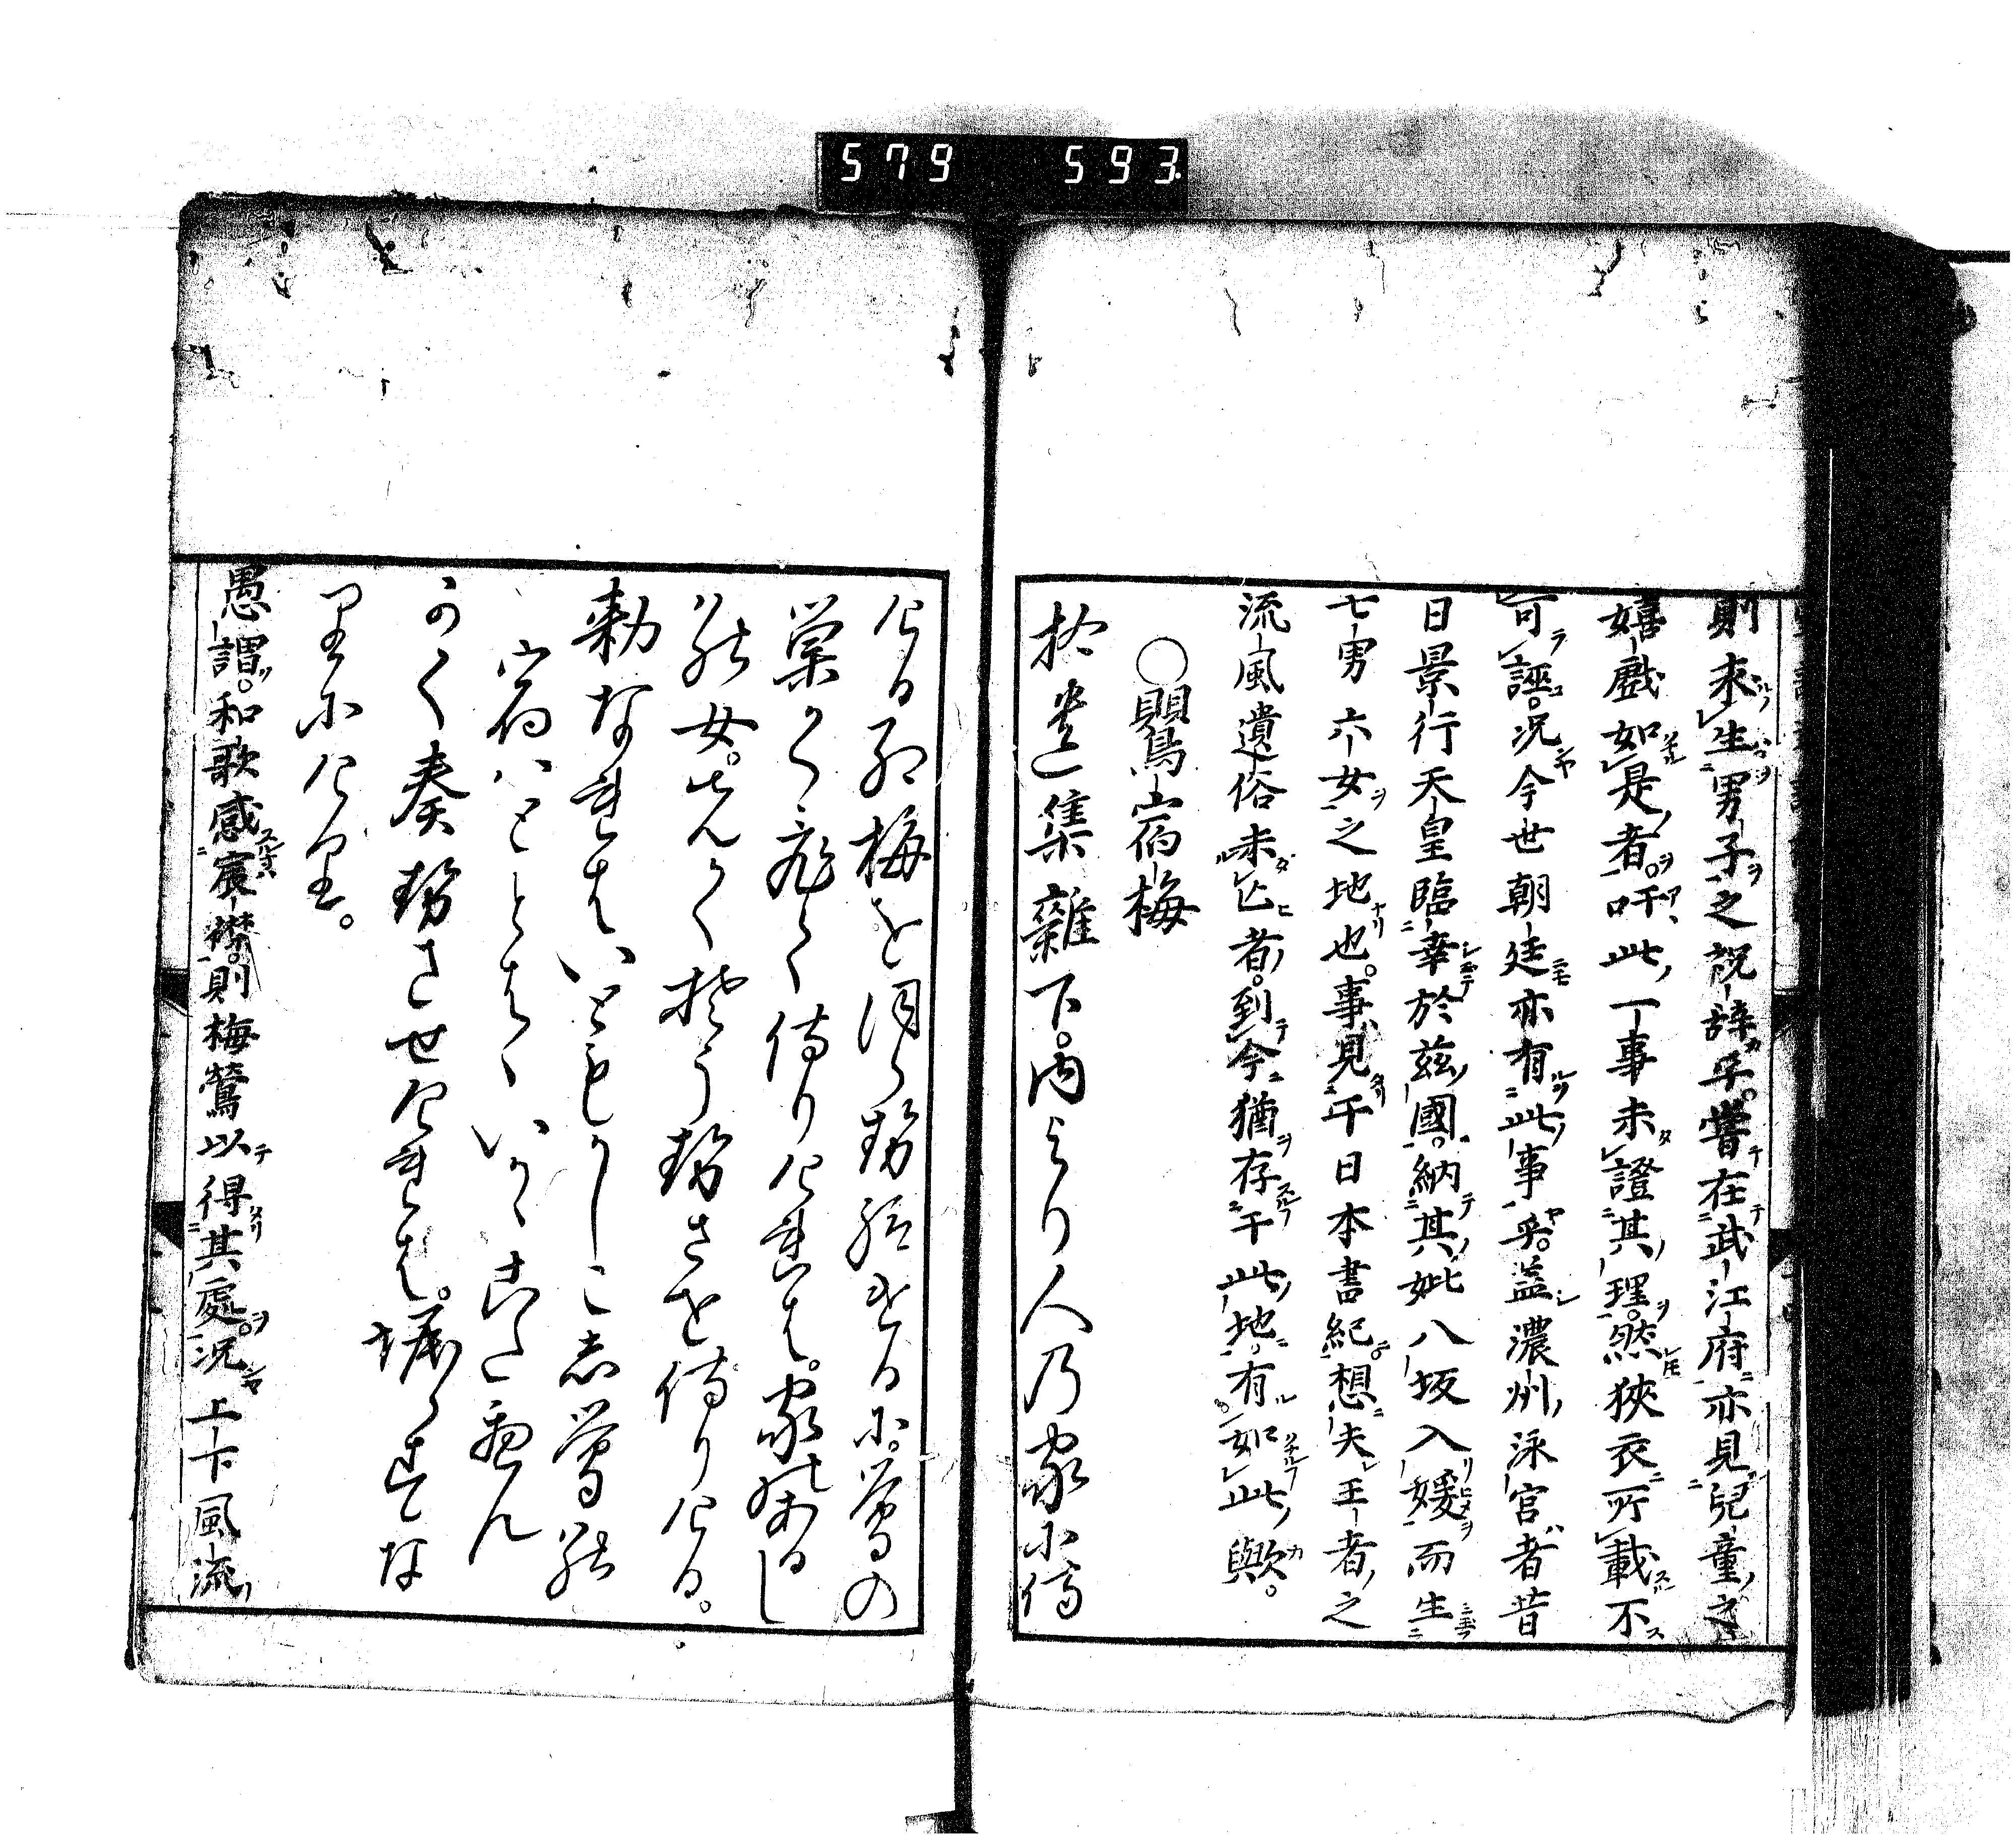 則来生男子之祝辞乎。嘗在武江府亦見兒童之
嬉戯如是者。吁此一事未證其理。然狹衣所載不
可誣。况今世朝廷亦有此事乎。盖濃州泳宮者昔
日景行天皇臨幸於茲國。納其妣八坂入媛而生
七男六女之地也。事見于日本書紀。想夫王者之
流風遺俗未亡者。到今猶存于此地有如此歟。
○鸎宿梅
拾遺集雜下。内より人乃家に侍
ける紅梅をほらせ給けるに。鶯の
巣くひて侍りけれは。家あるし
能女。まつかくそうせさせ侍りける。
勅なれはいともかしこし鶯能
宿はととはゝいかゝこたへん
かく奏せさせけれは。堀らすな
りにけり。
愚謂。和歌感宸襟。則梅鶯以得其處。况上下風流
579 593